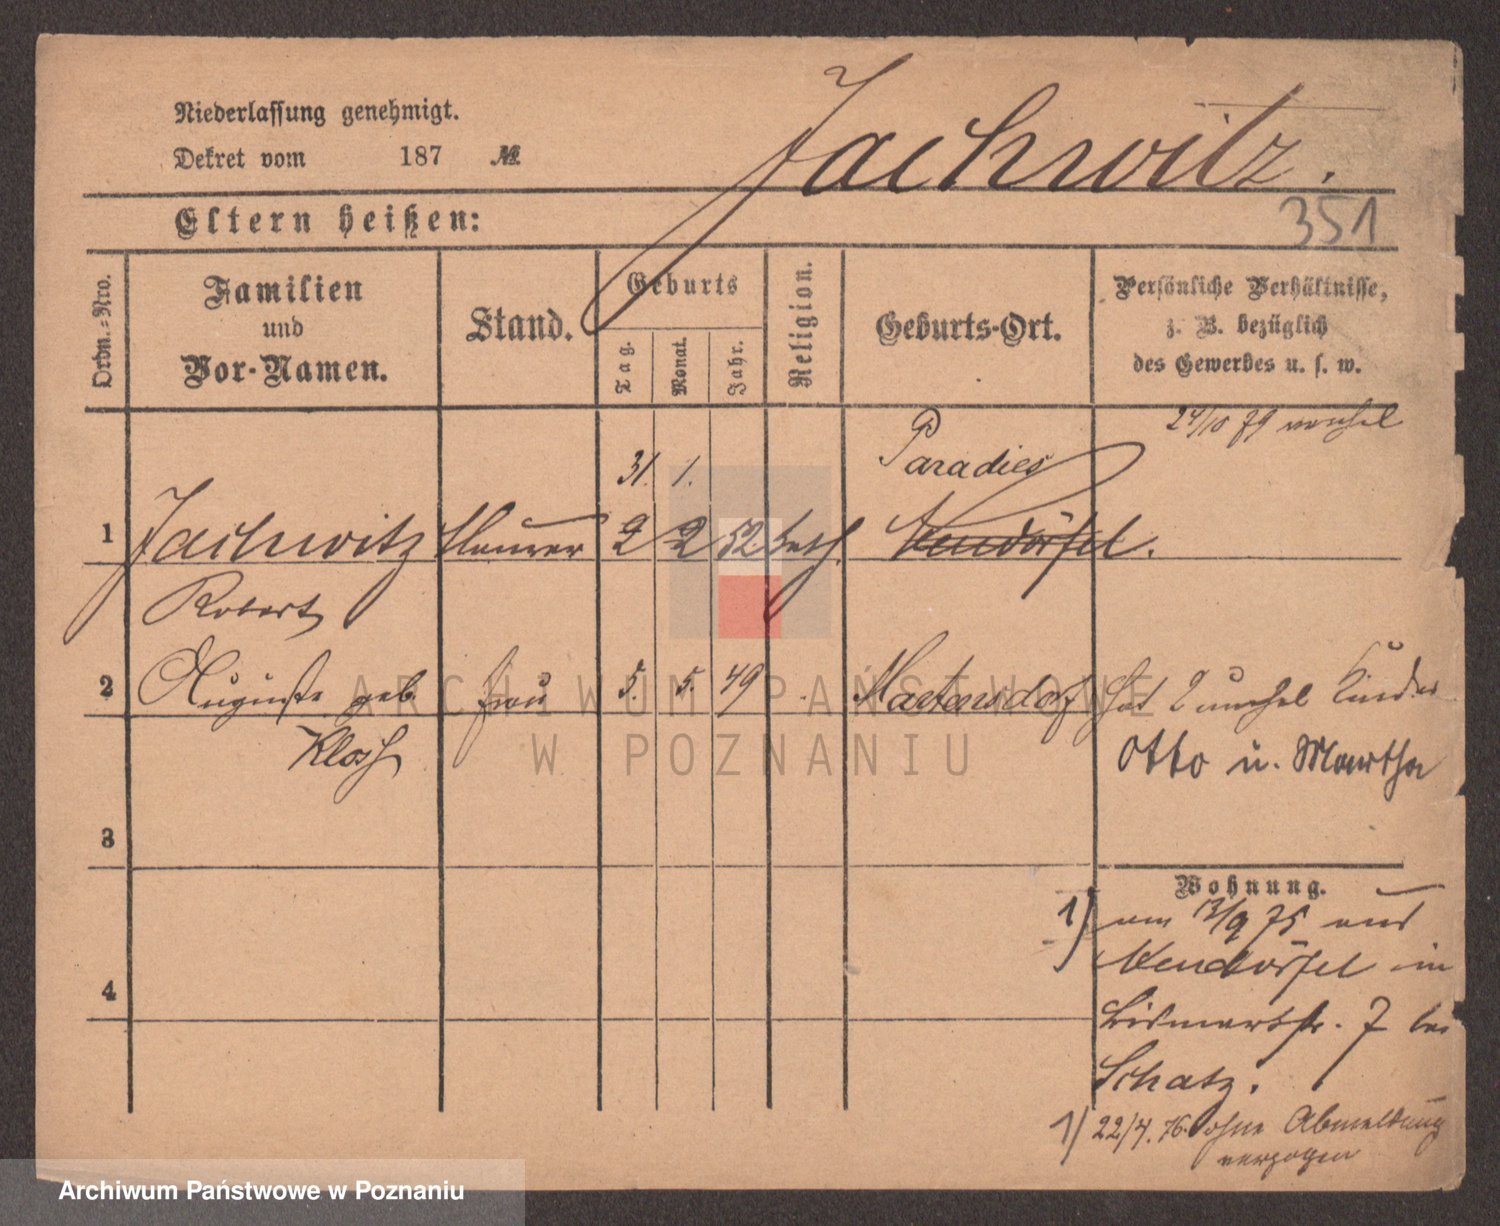 Niederlassung genehmigt.
Dekret vom 187 №
Jachwitz.
351
Eltern heißen:
Ordn.=Nro.
Familien
und
Vor-Namen.
Stand.
Geburts
Tag.
Monat.
Jahr.
Religion.
Geburts-Ort.
Persönliche Verhältnisse,
z. B. bezüglich
des Gewerbes u. s. w.
24/10 79
31. 1.
Paradies
1 Jachwitz Maurer 2 2 52 kath. Neudörfel.
Robert
2 Auguste geb. Frau 5. 5. 49 hat 2 unehel Kinder
Klosh
Otto u. Martha
3
Wohnung.
1) am 9 75 aus
Neudörfel in
Bismarkstr. 7 bei
Schatz.
4
1) 22/4. 76. ohne Abmeldung
verzogen
ARCHIWUM PAŃSTWOWE
W POZNANIU
Archiwum Państwowe w Poznaniu